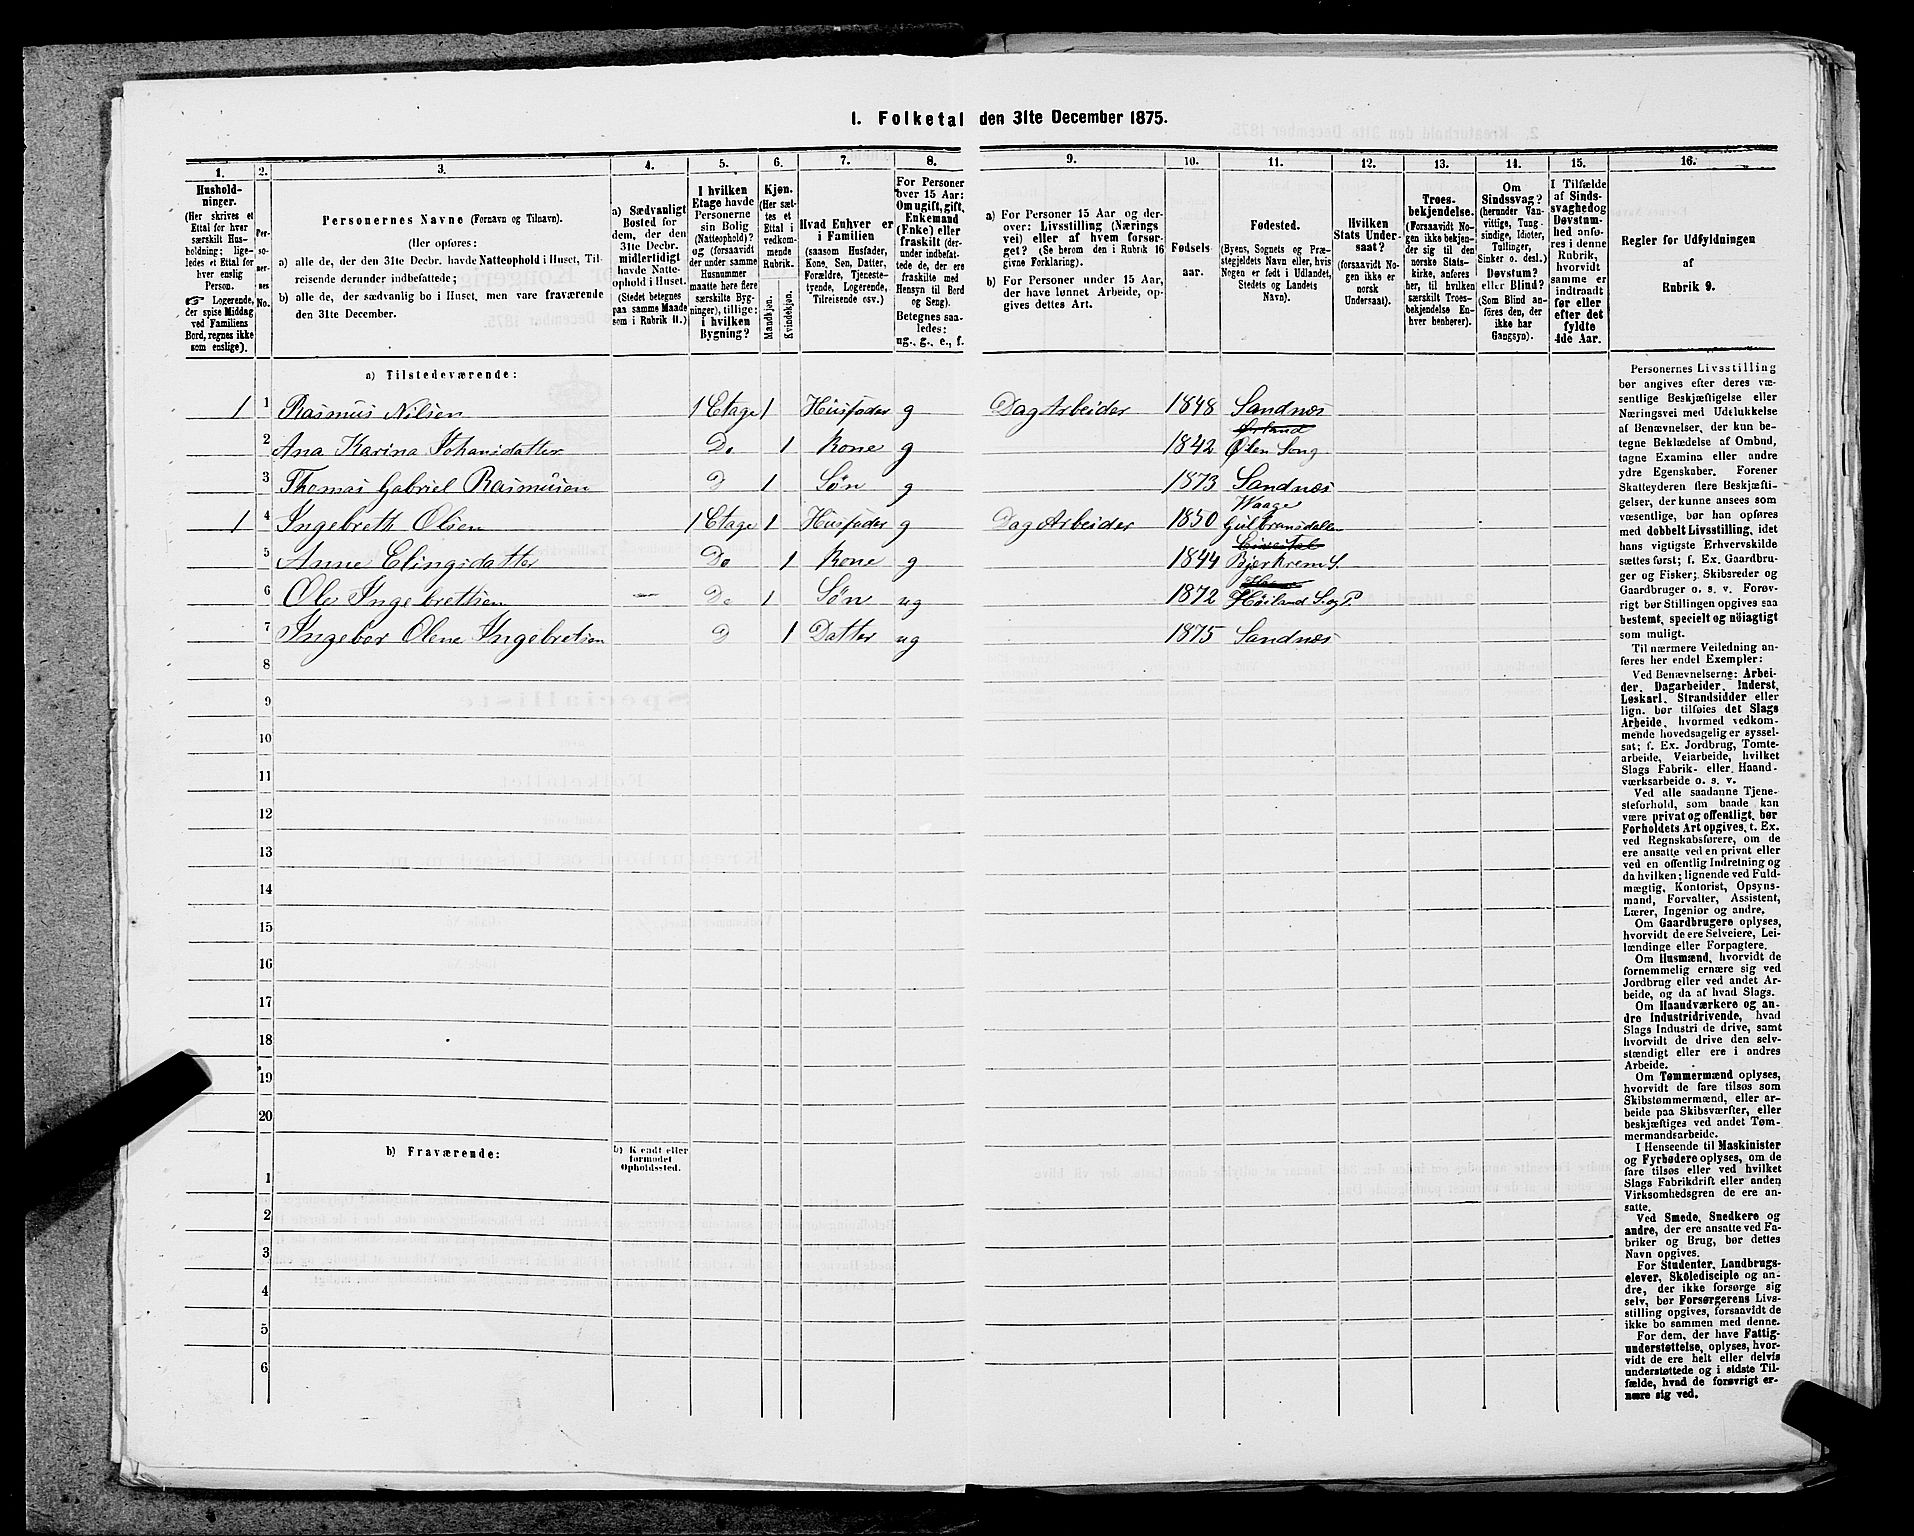 1. Folketal den 31te December 1875.
1. 2. 3. 4. 5. 6. 7. 8. 9. 10. 11. 12. 13. 14. 15. 16.
Hushold-
ninger.
(Her skrives et
Ettal for hver
særskilt Hus-
holdning; lige-
ledes et Ettal for
hver enslig
Person.
☞ Logerende,
der spise Middag
ved Familiens
Bord, regnes ikke
som enslige).
Per-
so-
ner-
nes
No.
Personernes Navne (Fornavn og Tilnavn).
(Her opføres:
a) alle de, der den 31te Decbr. havde Natteophold i Huset, Til-
reisende derunder indbefattede;
b) alle de, der sædvanlig bo i Huset, men vare fraværende
den 31te December.
a) Sædvanligt
Bosted for
dem, der den
31te Decbr.
midlertidigt
havde Natte-
ophold i Huset.
(Stedet betegnes
paa samme Maade
som i Rubrik 11.)
I hvilken
Etage havde
Personerne
sin Bolig
(Natteophold)?
og (forsaavidt
der under samme
Husnummer
maatte høre flere
særskilte Byg-
ninger), tillige:
i hvilken
Bygning?
Kjøn.
(Her sæt-
tes et
Ettal i
vedkom-
mende
Rubrik.
Mandkjøn.
Kvindekjøn.
Hvad Enhver er
i Familien
(saasom Husfader,
Kone, Søn, Datter,
Forældre, Tjeneste-
tyende, Logerende,
Tilreisende osv.)
For Personer
over 15 Aar:
Om ugift, gift,
Enkemand
(Enke) eller
fraskilt (der-
under indbefat-
tede de, der ere
fraskilte med
Hensyn til Bord
og Seng).
Betegnes saa-
ledes:
ug., g., e., f.
a) For Personer 15 Aar og der-
over: Livsstilling (Nærings
vei) eller af hvem forsør-
get? (Se herom den i Rubrik 16
givne Forklaring).
b) For Personer under 15 Aar,
der have lønnet Arbeide, op-
gives dettes Art.
Fødsels-
aar.
Fødested.
(Byens, Sognets og Præ-
stegjeldets Navn eller, hvis
Nogen er født i Udlandet,
Stedets og Landets
Navn).
Hvilken
Stats Under-
saat?
(forsaavidt No-
gen ikke er
norsk
Undersaat).
Troes-
bekjendelse.
(Forsaavidt No-
gen ikke bekjen-
der sig til den
norske Stats-
kirke, anføres
her, til hvilken
særskilt Troes-
bekjendelse En-
hver henhører).
Om
Sindssvag?
(herunder Van-
vittige, Tung-
sindige, Idioter,
Tullinger,
Sinker o. desl.)
Døvstum?
eller Blind?
(Som Blind an-
føres den, der
ikke har
Gangsyn).
I Tilfælde
af Sinds-
svaghed og
Døvstum-
hed anfø-
res i denne
Rubrik,
hvorvidt
samme er
indtraadt
før eller
efter det
fyldte
4de Aar.
Regler for Udfyldningen
af
Rubrik 9.
a) Tilstedeværende:
1 1 Rasmus Nilsen 1 Etage 1 Husfader g Dag Arbeider 1848 Sandnæs
2 Ana Karina Johansdatter Do 1 Kone g 1842 Ølen Song
3 Thomas Gabriel Rasmusen D 1 Søn g 1873 Sandnæs
Waage
1 4 Ingebreth Olsen 1 Etage 1 Husfader g Dag Arbeider 1850 Gulbransdalen
5 Anne Elingsdatter Do 1 Kone g 1844 Bjerkrem S.
6 Ole Ingebretsen Do 1 Søn ug 1872 Høiland S. og P.
7 Ingebor Olene Ingebretsen D 1 Datter ug 1875 Sandnæs
8
9
10
11
12
13
14
15
16
17
18
19
20
b) Fraværende:
b) Kjendt eller
formodet
Opholdssted.
1
2
3
4
5
6
Personernes Livsstilling
bør angives efter deres væ-
sentlige Beskjæftigelse eller
Næringsvei med Udelukkelse
af Benævnelser, der kun be-
tegne Beklædelse af Ombud,
tagne Examina eller andre
ydre Egenskaber. Forener
Skatteyderen flere Beskjæfti-
gelser, der kunne ansees som
væsentlige, bør han opføres
med dobbelt Livsstilling, idet
hans vigtigste Erhvervskilde
sættes først; f. Ex. Gaardbru-
ger og Fisker; Skibsreder og
Gaardbruger o. s. v. Forøv-
rigt bør Stillingen opgives saa
bestemt, specielt og nøiagtigt
som muligt.
Til nærmere Veiledning an-
føres her endel Exempler:
Ved Benævnelserne: Arbei-
der, Dagarbeider, Inderst,
Løskarl, Strandsidder eller
lign. bør tilføies det Slags
Arbeide, hvormed vedkom-
mende hovedsagelig er syssel-
sat; f. Ex. Jordbrug, Tomte-
arbeide, Veiarbeide, hvilket
Slags Fabrik- eller Haand-
værksarbeide o. s. v.
Ved alle saadanne Tjene-
steforhold, som baade kan
være privat og offentligt, bør
Forholdets Art opgives, t. Ex.
ved Regnskabsførere, om de
ere ansatte ved en privat eller
ved en offentlig Indretning og
da hvilken; lignende ved Fuld-
mægtig, Kontorist, Opsyns-
mand, Forvalter, Assistent,
Lærer, Ingeniør og andre.
Om Gaardbrugere oplyses,
hvorvidt de ere Selveiere, Lei-
lændinge eller Forpagtere.
Om Husmænd, hvorvidt de
fornemmelig ernære sig ved
Jordbrug eller ved andet Ar-
beide, og da af hvad Slags.
Om Haandværkere og an-
dre Industridrivende, hvad
Slags Industri de drive, samt
hvorvidt de drive den selv-
stændigt eller ere i andres
Arbeide.
Om Tømmermænd oplyses,
hvorvidt de fare tilsøs som
Skibstømmermænd, eller ar-
beide paa Skibsværfter, eller
beskjæftiges ved andet Tøm-
mermandsarbeide.
I Henseende til Maskinister
og Fyrbødere oplyses, om de
fare tilsøs eller ved hvilket
Slags Fabrikdrift eller anden
Virksomhedsgren de ere an-
satte.
Ved Smede, Snedkere og
andre, der ere ansatte ved Fa-
briker og Brug, bør dettes
Navn opgives.
For Studenter, Landbrugs-
elever, Skoledisciple og an-
dre, der ikke forsørge sig
selv, bør Forsørgerens Livs-
stilling opgives, forsaavidt de
ikke bo sammen med denne.
For dem, der have Fattig-
understøttelse, oplyses, hvor-
vidt de ere helt eller delvis
understøttede og i sidste Til-
fælde, hvad de forøvrigt er-
nære sig ved.